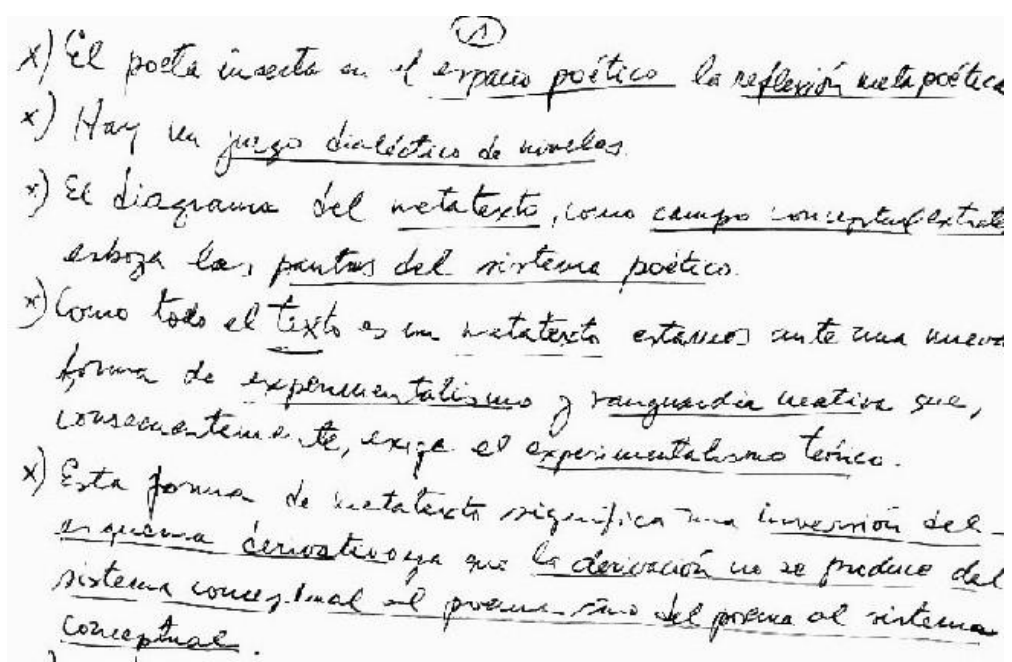 1
x) El poeta inserta en el espacio poético la reflexión metapoética
x) Hay un juego dialéctico de niveles.
x) El diagrama del metatexto, como campo conceptual extrate
esboza las pautas del sistema poético.
x) Como todo el texto es un metatexto estamos ante una nueva
forma de experimentalismo y vanguardia creativa que,
consecuentemente, exige el experimentalismo teórico.
x) Esta forma de metatexto significa una inversión del
esquema derivativo ya que la derivación no se produce del
sistema conceptual al poema sino del poema al sistema
conceptual.